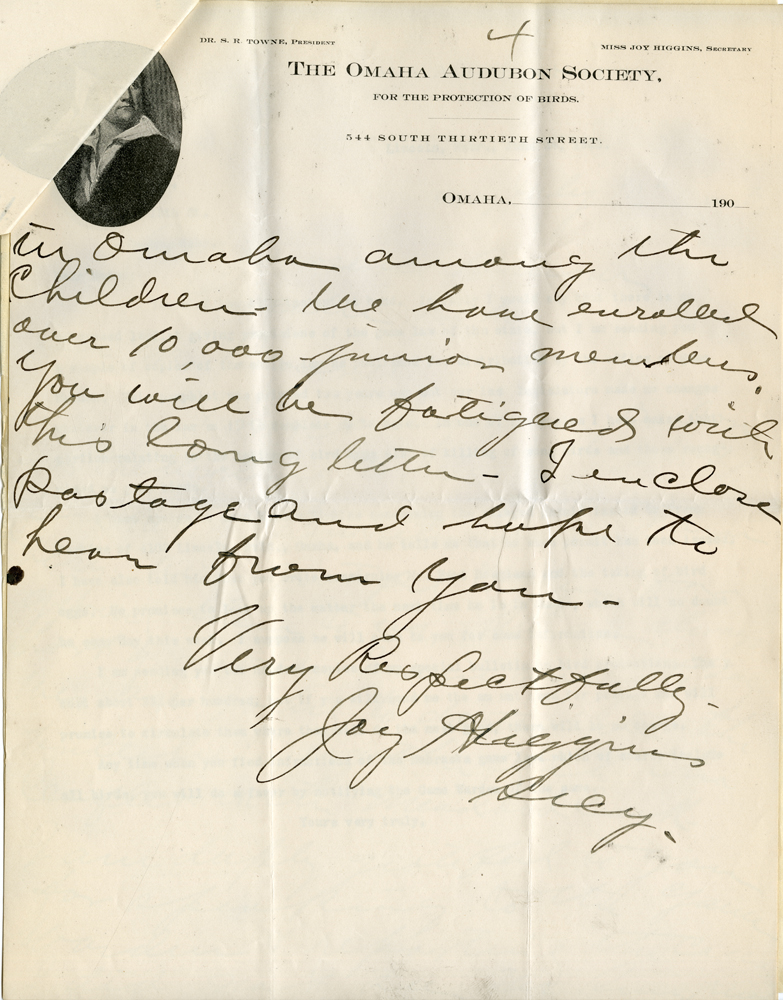 4
DR. S. R. TOWNE, PRESIDENT
MISS JOY HIGGINS, SECRETARY
THE OMAHA AUDUBON SOCIETY,
FOR THE PROTECTION OF BIRDS.
544 SOUTH THIRTIETH STREET.
OMAHA, 190
in Omaha among the
Children - We have enrolled
over 10,000 junior members.
You will be fatigued with
this long letter - I enclose
postage and hope to
hear from you -
Very Respectfully -
Joy Higgins
Secy.